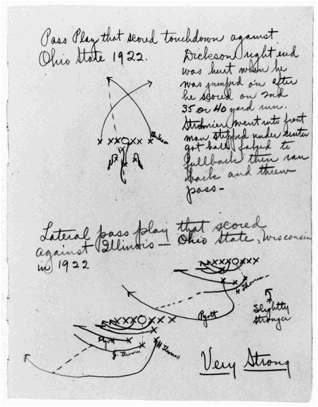 Pass Play that scored touchdown against
Ohio State 1922.
Dickson right end
was hurt when he
was jumped on after
he scored on 2nd
35 or 40 yard run.
went into front
man stepped under center
got ball faked to
fullback then ran
back and threw
pass-
Lateral pass play that scored
against Illinois - Ohio State, Wisconsin
in 1922
H Thomas
Pyott
Slightly
stronger
Pyott
J Thomas
H Thomas
Very Strong